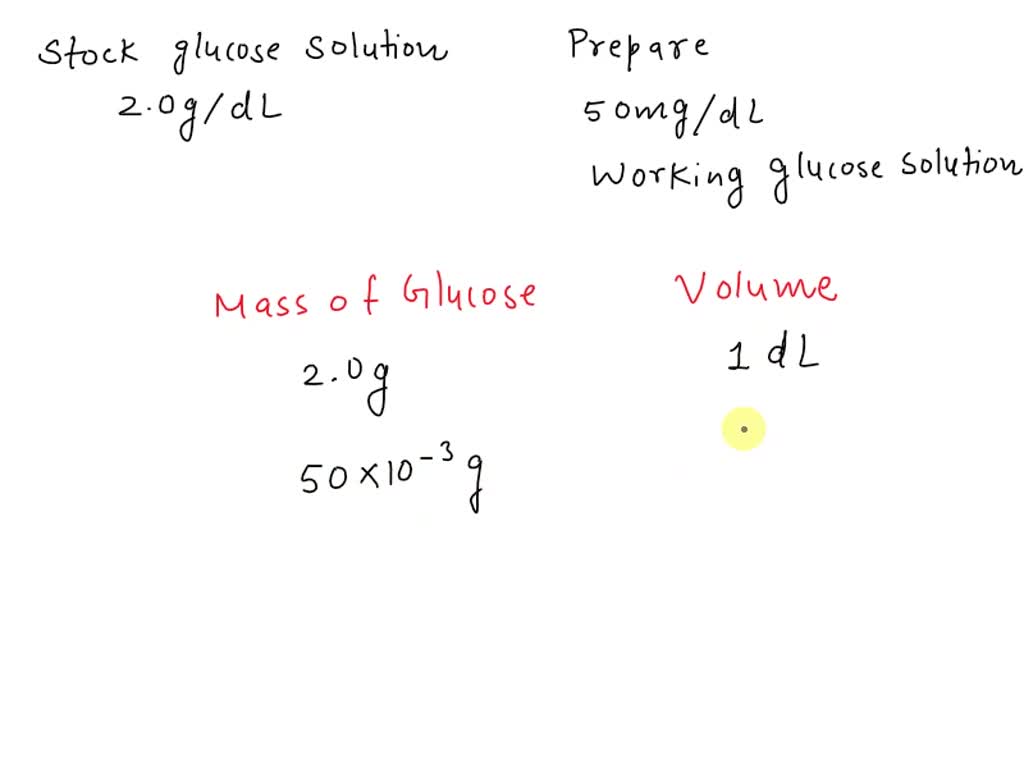 Stock glucose solution
2.0g/dL
Prepare
50mg/dL
Working glucose solution
Mass of Glucose
Volume
2.0g
1 dL
50×10⁻³ g